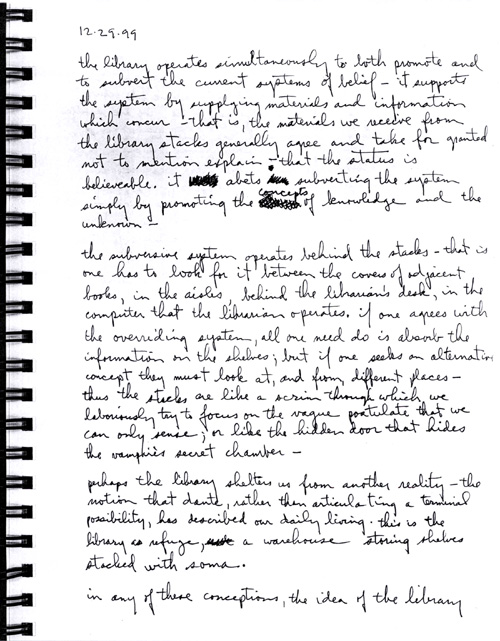 12.29.99
the library operates simultaneously to both promote and
to subvert the current systems of belief – it supports
the system by supplying materials and information
which concur – that is, the materials we receive from
the library stacks generally agree and take for granted
not to mention explain – that the status is
believeable. it abets subverting the system
simply by promoting the concepts of knowledge and the
unknown –
the subversive system operates behind the stacks – that is
one has to look for it between the covers of adjacent
books, in the aisles, behind the librarian's desk, in the
computer that the librarian operates. if one agrees with
the overriding system, all one need do is absorb the
information on the shelves; but if one seeks an alternative
concept they must look at, and from, different places –
thus the stacks are like a scrim through which we
laboriously try to focus on the vague postulate that we
can only sense; or like the hidden door that hides
the vampire's secret chamber –
perhaps the library shelters us from another reality – the
notion that dante, rather than articulating a terminal
possibility, has described our daily living. this is the
library as refuge, a warehouse storing shelves
stacked with soma.
in any of these conceptions, the idea of the library